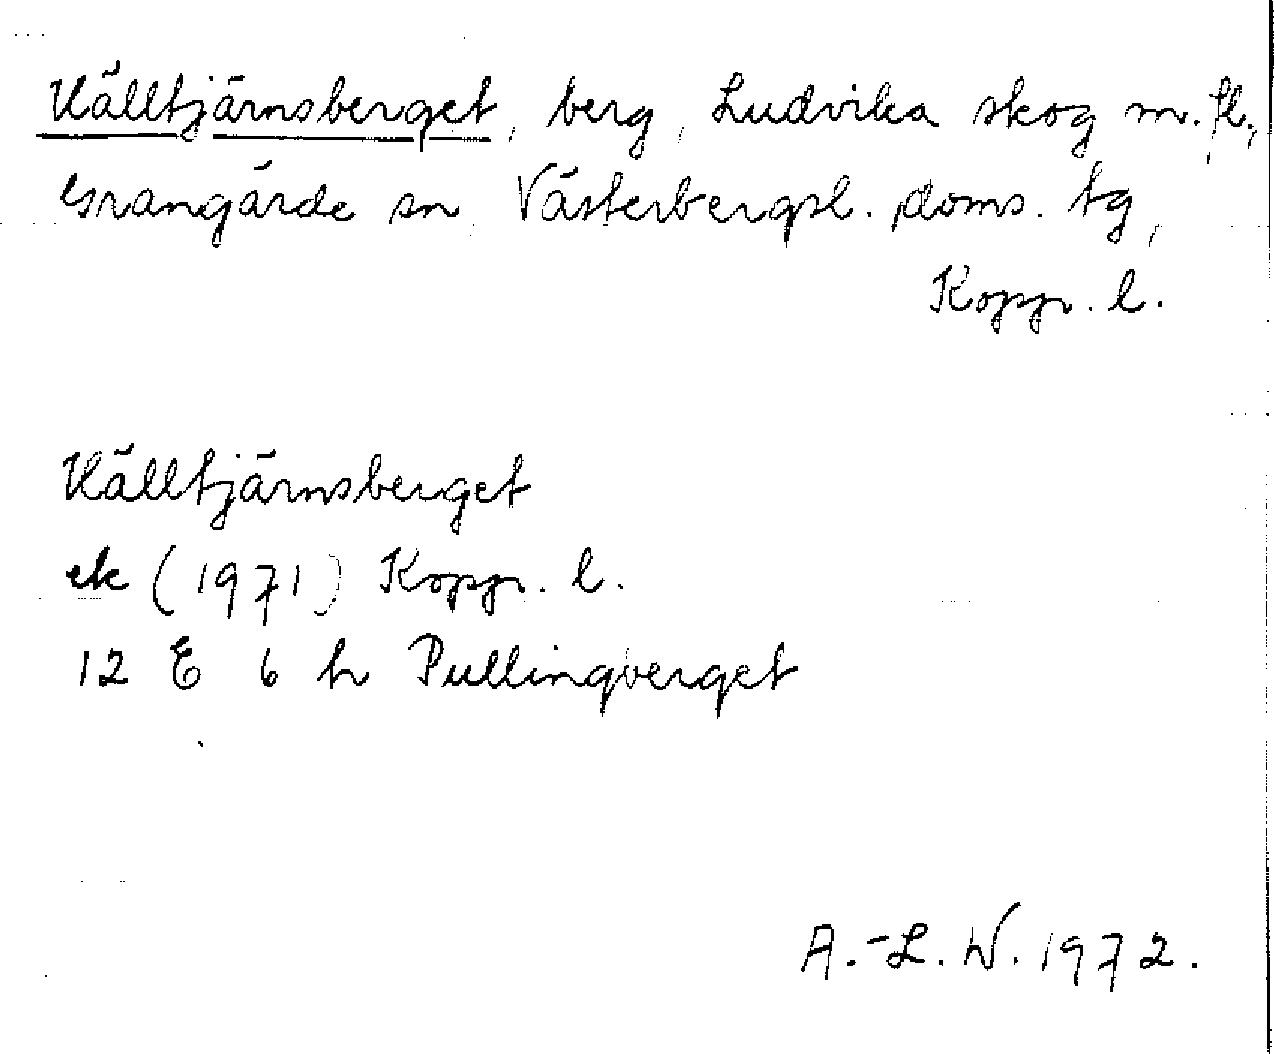 Källtjärnsberget, berg, Ludvika skog m. fl.,
Grangärde sn, Västerbergsl. doms. tg,
Kopp. l.
Källtjärnsberget
ek (1971) Kopp. l.
12 E 6 h Pullingberget
A.-L. W. 1972.